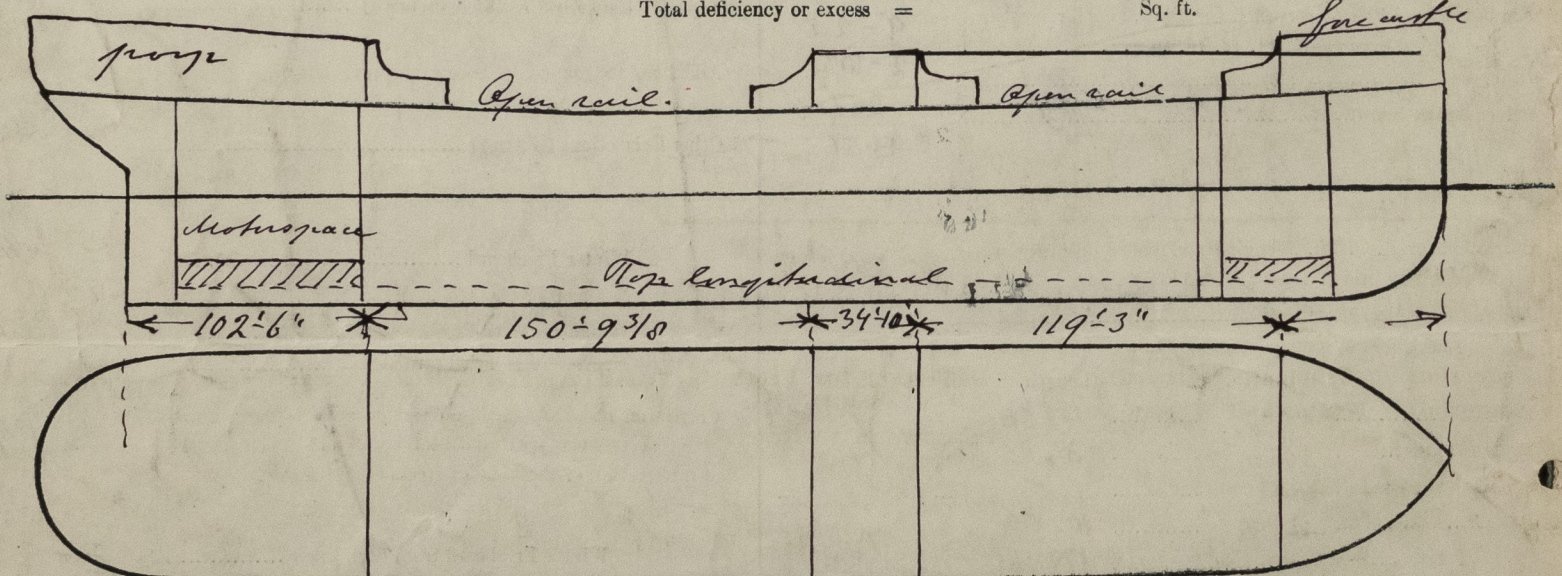 Total deficiency or excess = Sq. ft.
forecastle
poop
Open rail.
Open rail
Motorspace
Top longitudinal
102'-6" 150-9 3/8 34'10 119'-3"